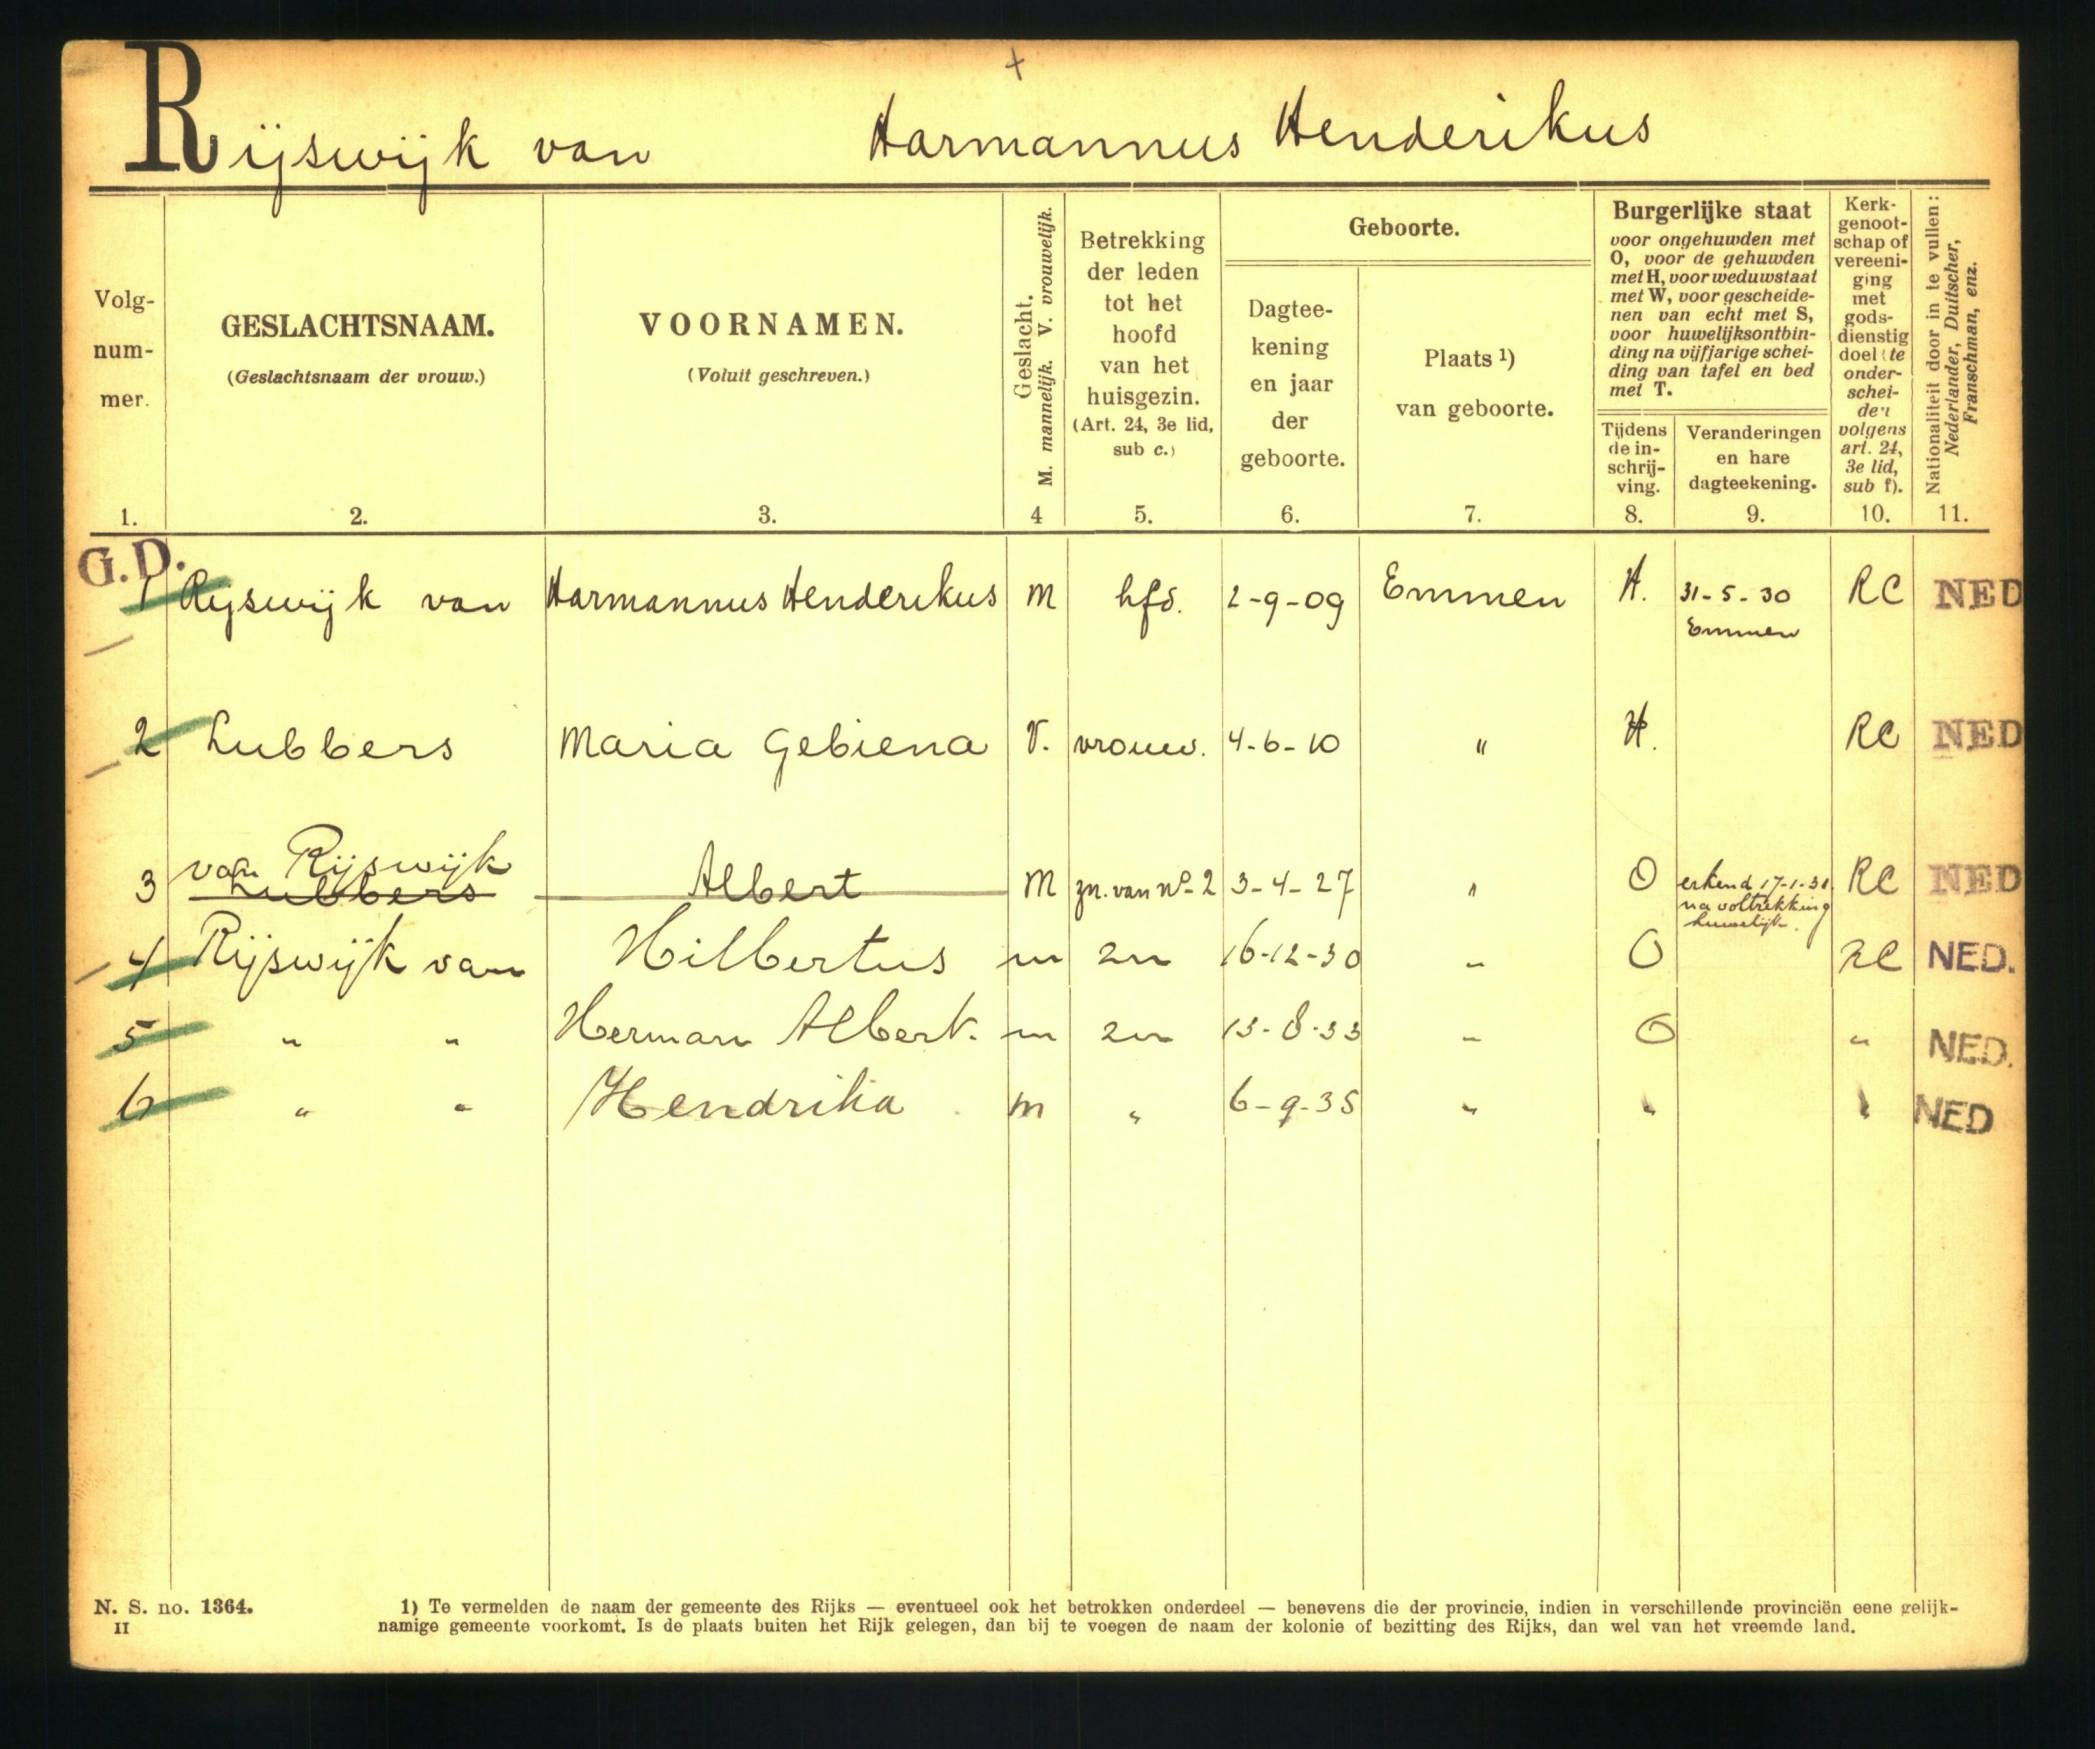 Rijswijk van Harmannus Henderikus
Volg-
num-
mer.
1.
GESLACHTSNAAM.
(Geslachtsnaam der vrouw.)
2.
VOORNAMEN.
(Voluit geschreven.)
3.
Geslacht.
M. mannelijk. V. vrouwelijk.
4
Betrekking
der leden
tot het
hoofd
van het
huisgezin.
(Art. 24, 3e lid,
sub c.)
5.
Geboorte.
Dagtee-
kening
en jaar
der
geboorte.
6.
Plaats ¹)
van geboorte.
7.
Burgerlijke staat
voor ongehuwden met
O, voor de gehuwden
met H, voor weduwstaat
met W, voor gescheide-
nen van echt met S,
voor huwelijksontbin-
ding na vijfjarige schei-
ding van tafel en bed
met T.
Tijdens
de in-
schrij-
ving.
8.
Veranderingen
en hare
dagteekening.
9.
Kerk-
genoot-
schap of
vereeni-
ging
met
gods-
dienstig
doel (te
onder-
schei-
den
volgens
art. 24,
3e lid,
sub f).
10.
Nationaliteit door in te vullen:
Nederlander, Duitscher,
Franschman, enz.
11.
G.D.
1 Rijswijk van Harmannus Henderikus M hfd. 2-9-09 Emmen H. 31-5-30 RC NED
Emmen
2 Lubbers Maria Gebiena V. vrouw. 4-6-10 " H. RC NED
van Rijswijk
3 Lubbers Albert M zn. van no 2 3-4-27 " O erkend 17-1-31 RC NED
na voltrekking
huwelijk.
4 Rijswijk van Hilbertus m zn 16-12-30 " O RC NED.
5 " " Herman Albert. m zn 13-8-33 " O " NED.
6 " " Hendrika m " 6-9-35 " " " NED
N. S. no. 1364.
II
1) Te vermelden de naam der gemeente des Rijks — eventueel ook het betrokken onderdeel — benevens die der provincie, indien in verschillende provinciën eene gelijk-
namige gemeente voorkomt. Is de plaats buiten het Rijk gelegen, dan bij te voegen de naam der kolonie of bezitting des Rijks, dan wel van het vreemde land.